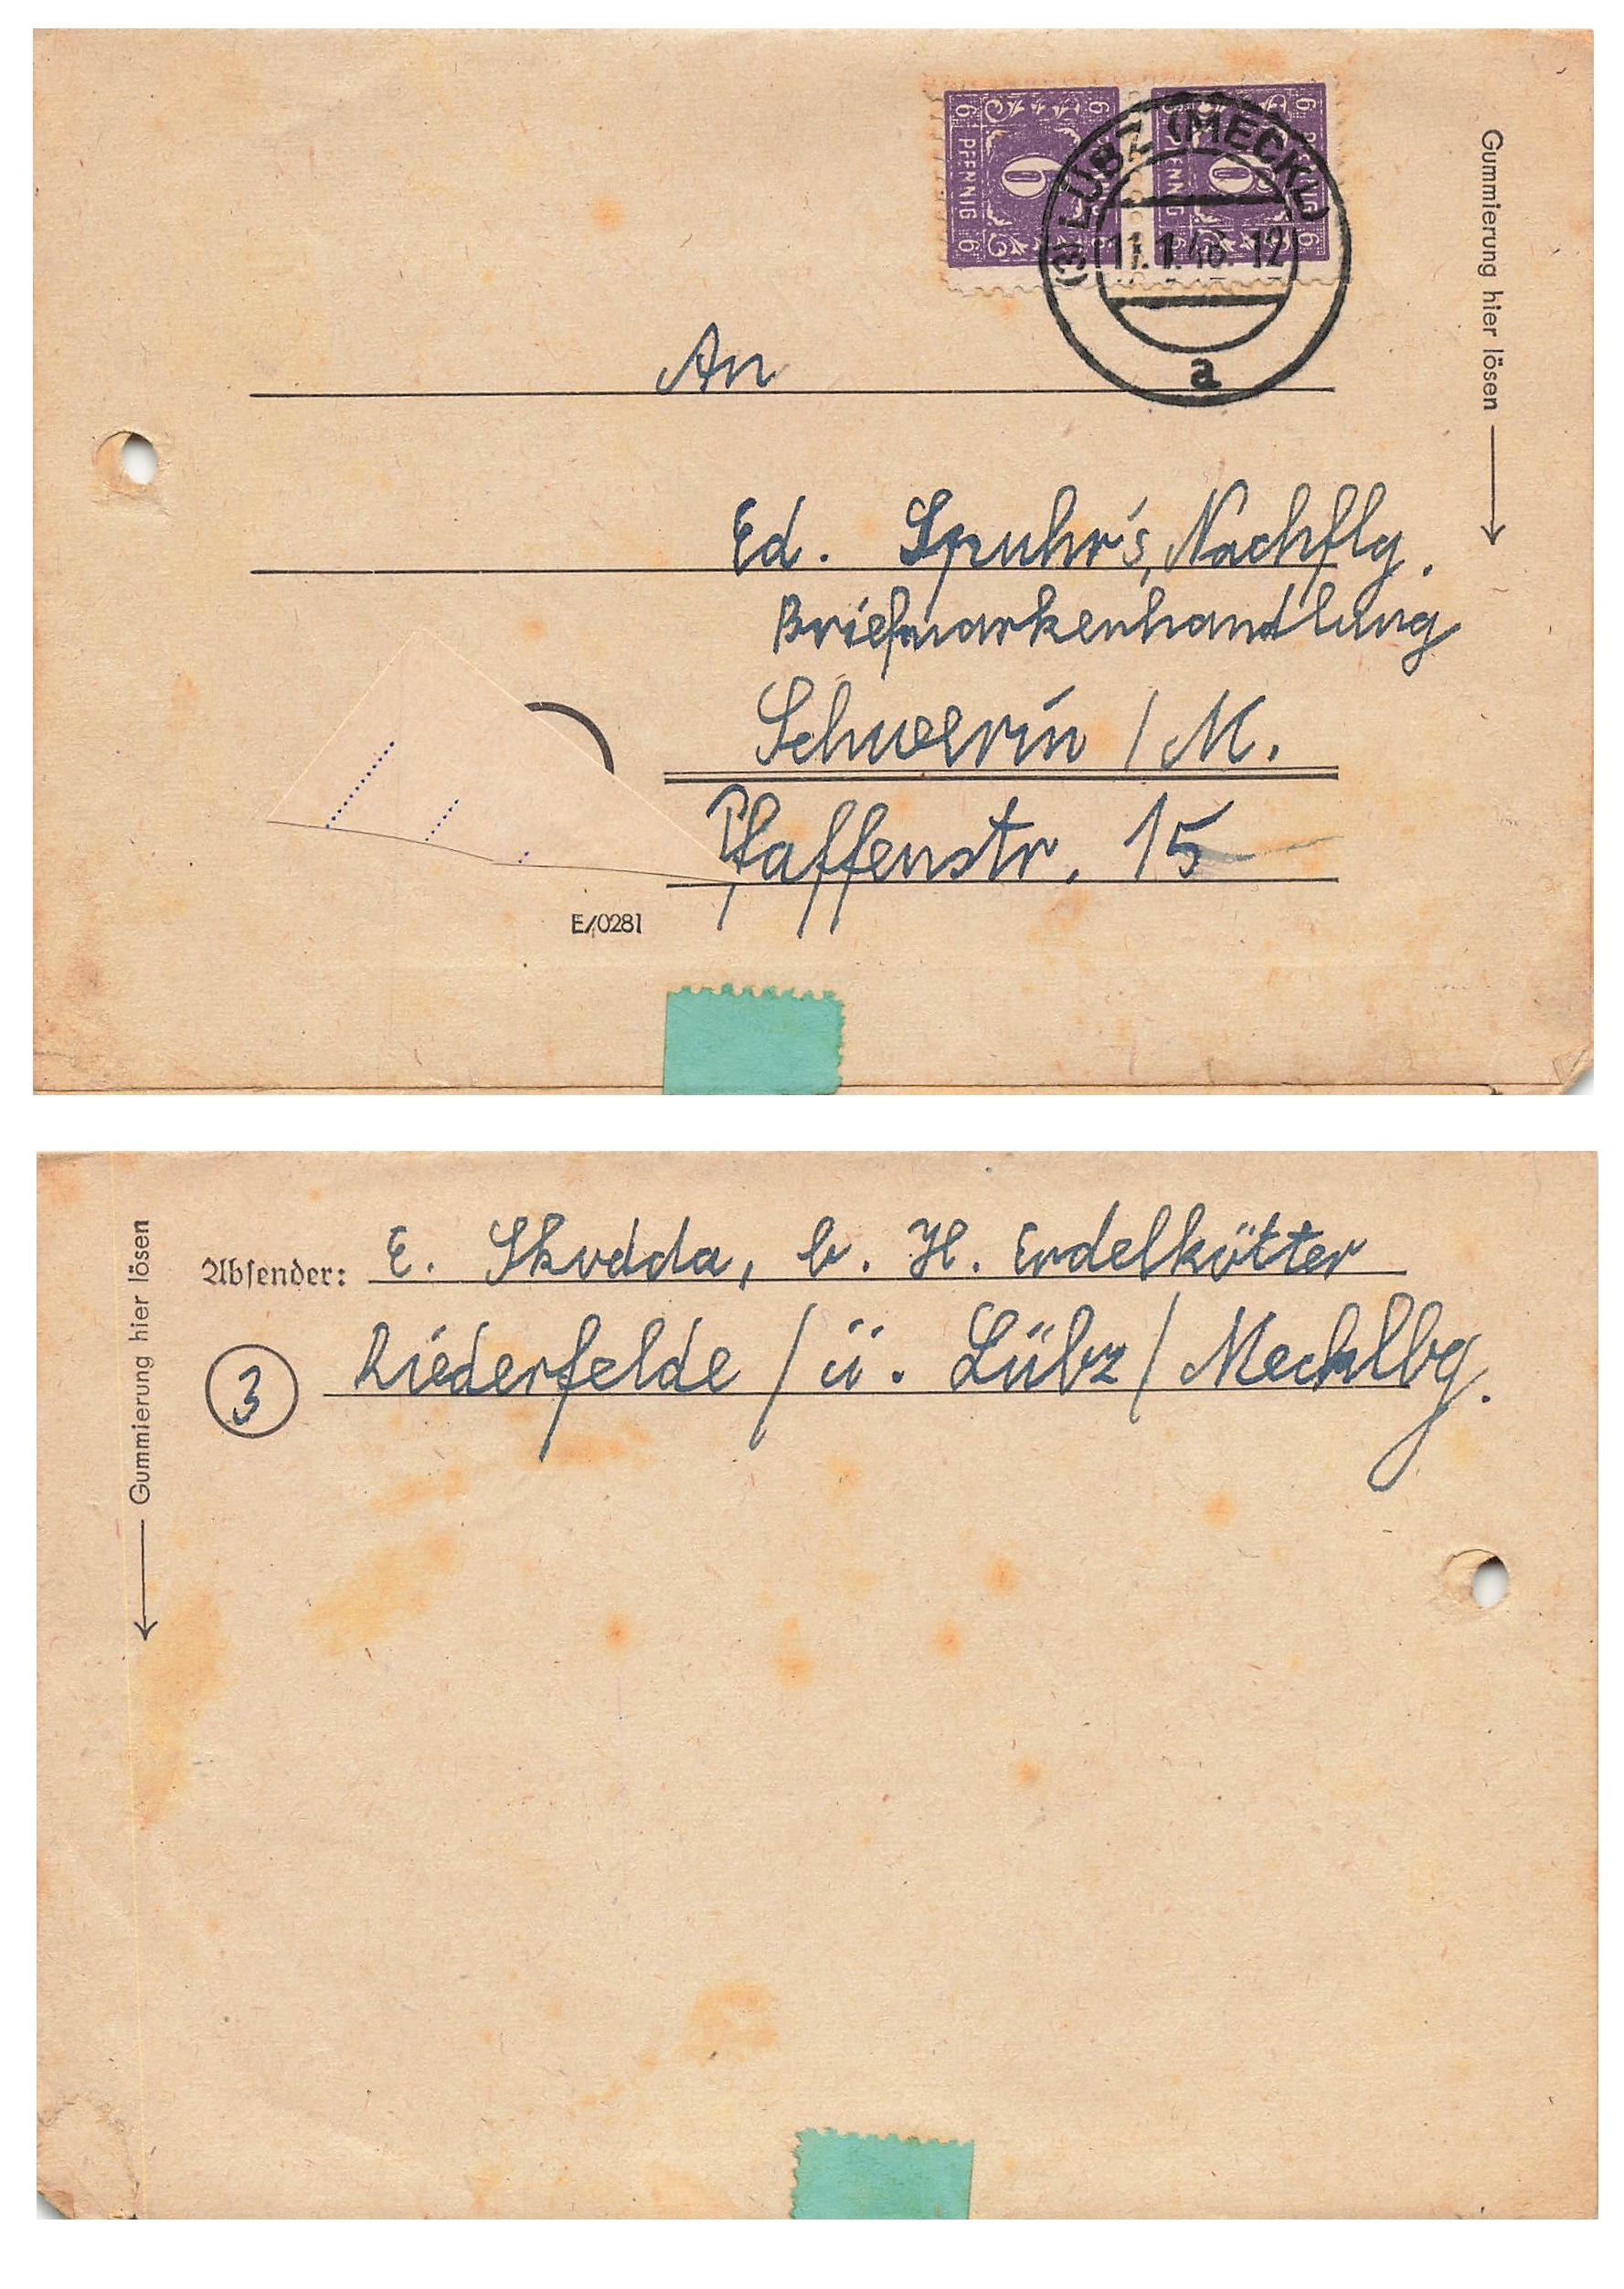 6 6
PFENNIG
6
6 6
6
PFENNIG
6
(3) LÜBZ (MECKL)
11.1.46. 12
a
Gummierung hier lösen
An
Ed. Spuhr's, Nachflg.
Briefmarkenhandlung
Schwerin / M.
Pfaffenstr. 15
E/0281
Gummierung hier lösen
Absender: E. Skodda, b. H. Erdelkötter
3 Riederfelde / ü. Lübz / Mecklbg.